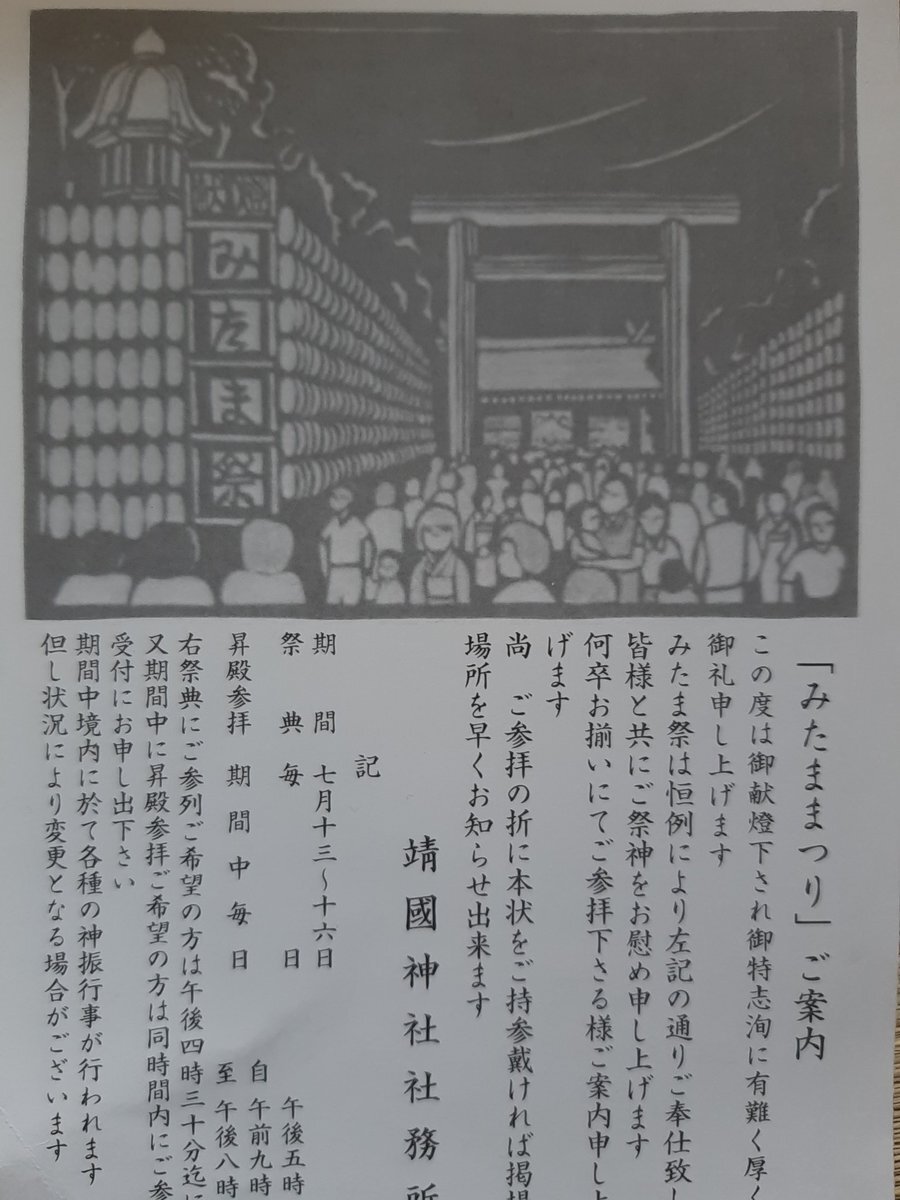 献燈
み
た
ま
祭
「みたままつり」ご案内
この度は御献燈下され御特志洵に有難く厚く
御礼申し上げます
みたま祭は恒例により左記の通りご奉仕致し
皆様と共にご祭神をお慰め申し上げます
何卒お揃いにてご参拝下さる様ご案内申し上
げます
尚 ご参拝の折に本状をご持参戴ければ掲揚
場所を早くお知らせ出来ます
靖國神社社務所
記
期間 七月十三～十六日
祭典 毎日 午後五時
昇殿参拝 期間中毎日 自 午前九時
至 午後八時
右祭典にご参列ご希望の方は午後四時三十分迄に
又期間中に昇殿参拝ご希望の方は同時間内にご参
受付にお申し出下さい
期間中境内に於て各種の神振行事が行われます
但し状況により変更となる場合がございます